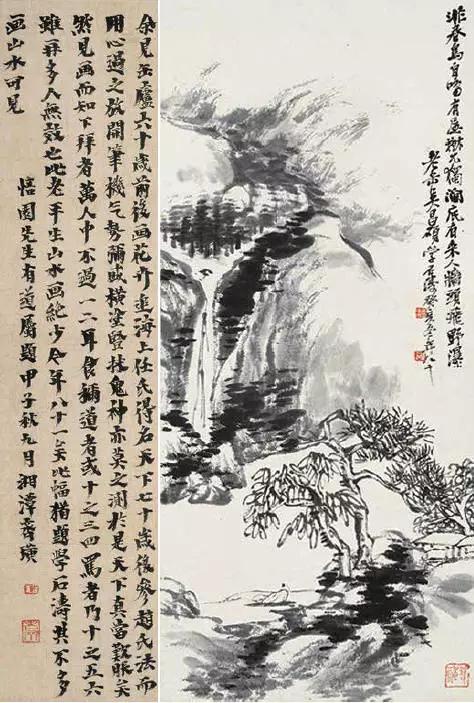 自啼有屋樹不獨澗底有来人頭飛野瀑
老缶吳昌碩學石濤癸亥年八十
余見缶廬六十歲前後画花卉追海上任氏得名天下七十歲後參趙氏法而
用心過之放開筆機氣勢彌盛橫塗豎抹鬼神亦莫之測於是天下真當歎服矣
然見画而知下拜者萬人中不過一二耳食稱道者或十之三四罵者乃十之五六
雖拜多人無也此老平生山水画絕少今年八十一矣此幅猶題學石濤其不多
画山水可見
悟園先生有道屬題甲子秋九月湘潭齊璜